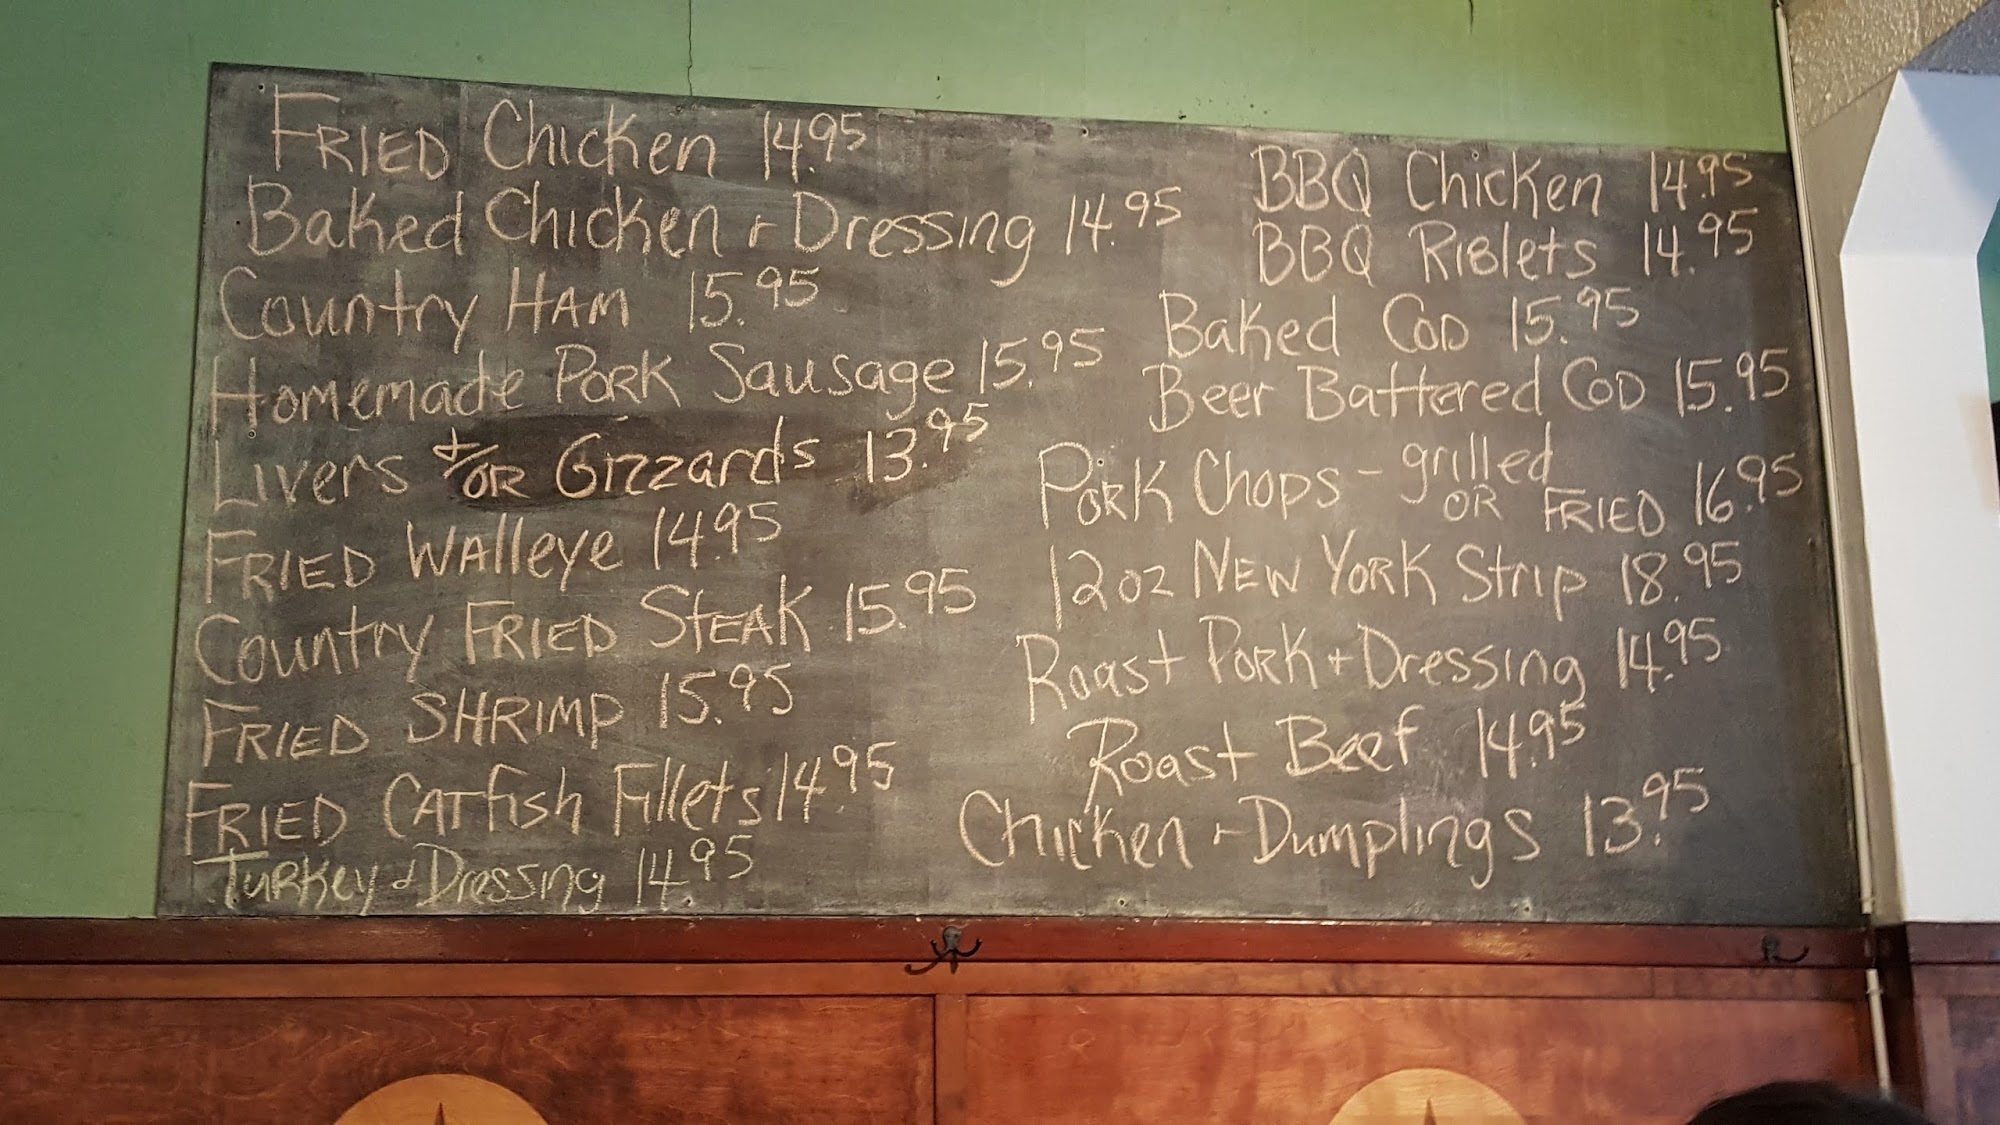 FRIED Chicken 14.95
Baked Chicken + Dressing 14.95
Country HAM 15.95
Homemade Pork Sausage 15.95
Livers +/OR Gizzards 13.95
FRIED Walleye 14.95
Country FRIED STEAK 15.95
FRIED SHRIMP 15.95
FRIED CATfish Fillets 14.95
Turkey & Dressing 14.95
BBQ Chicken 14.95
BBQ RiBlets 14.95
Baked COD 15.95
Beer Battered COD 15.95
Pork Chops - grilled OR FRIED 16.95
12oz NEW YORK Strip 18.95
Roast Pork + Dressing 14.95
Roast Beef 14.95
Chicken + Dumplings 13.95